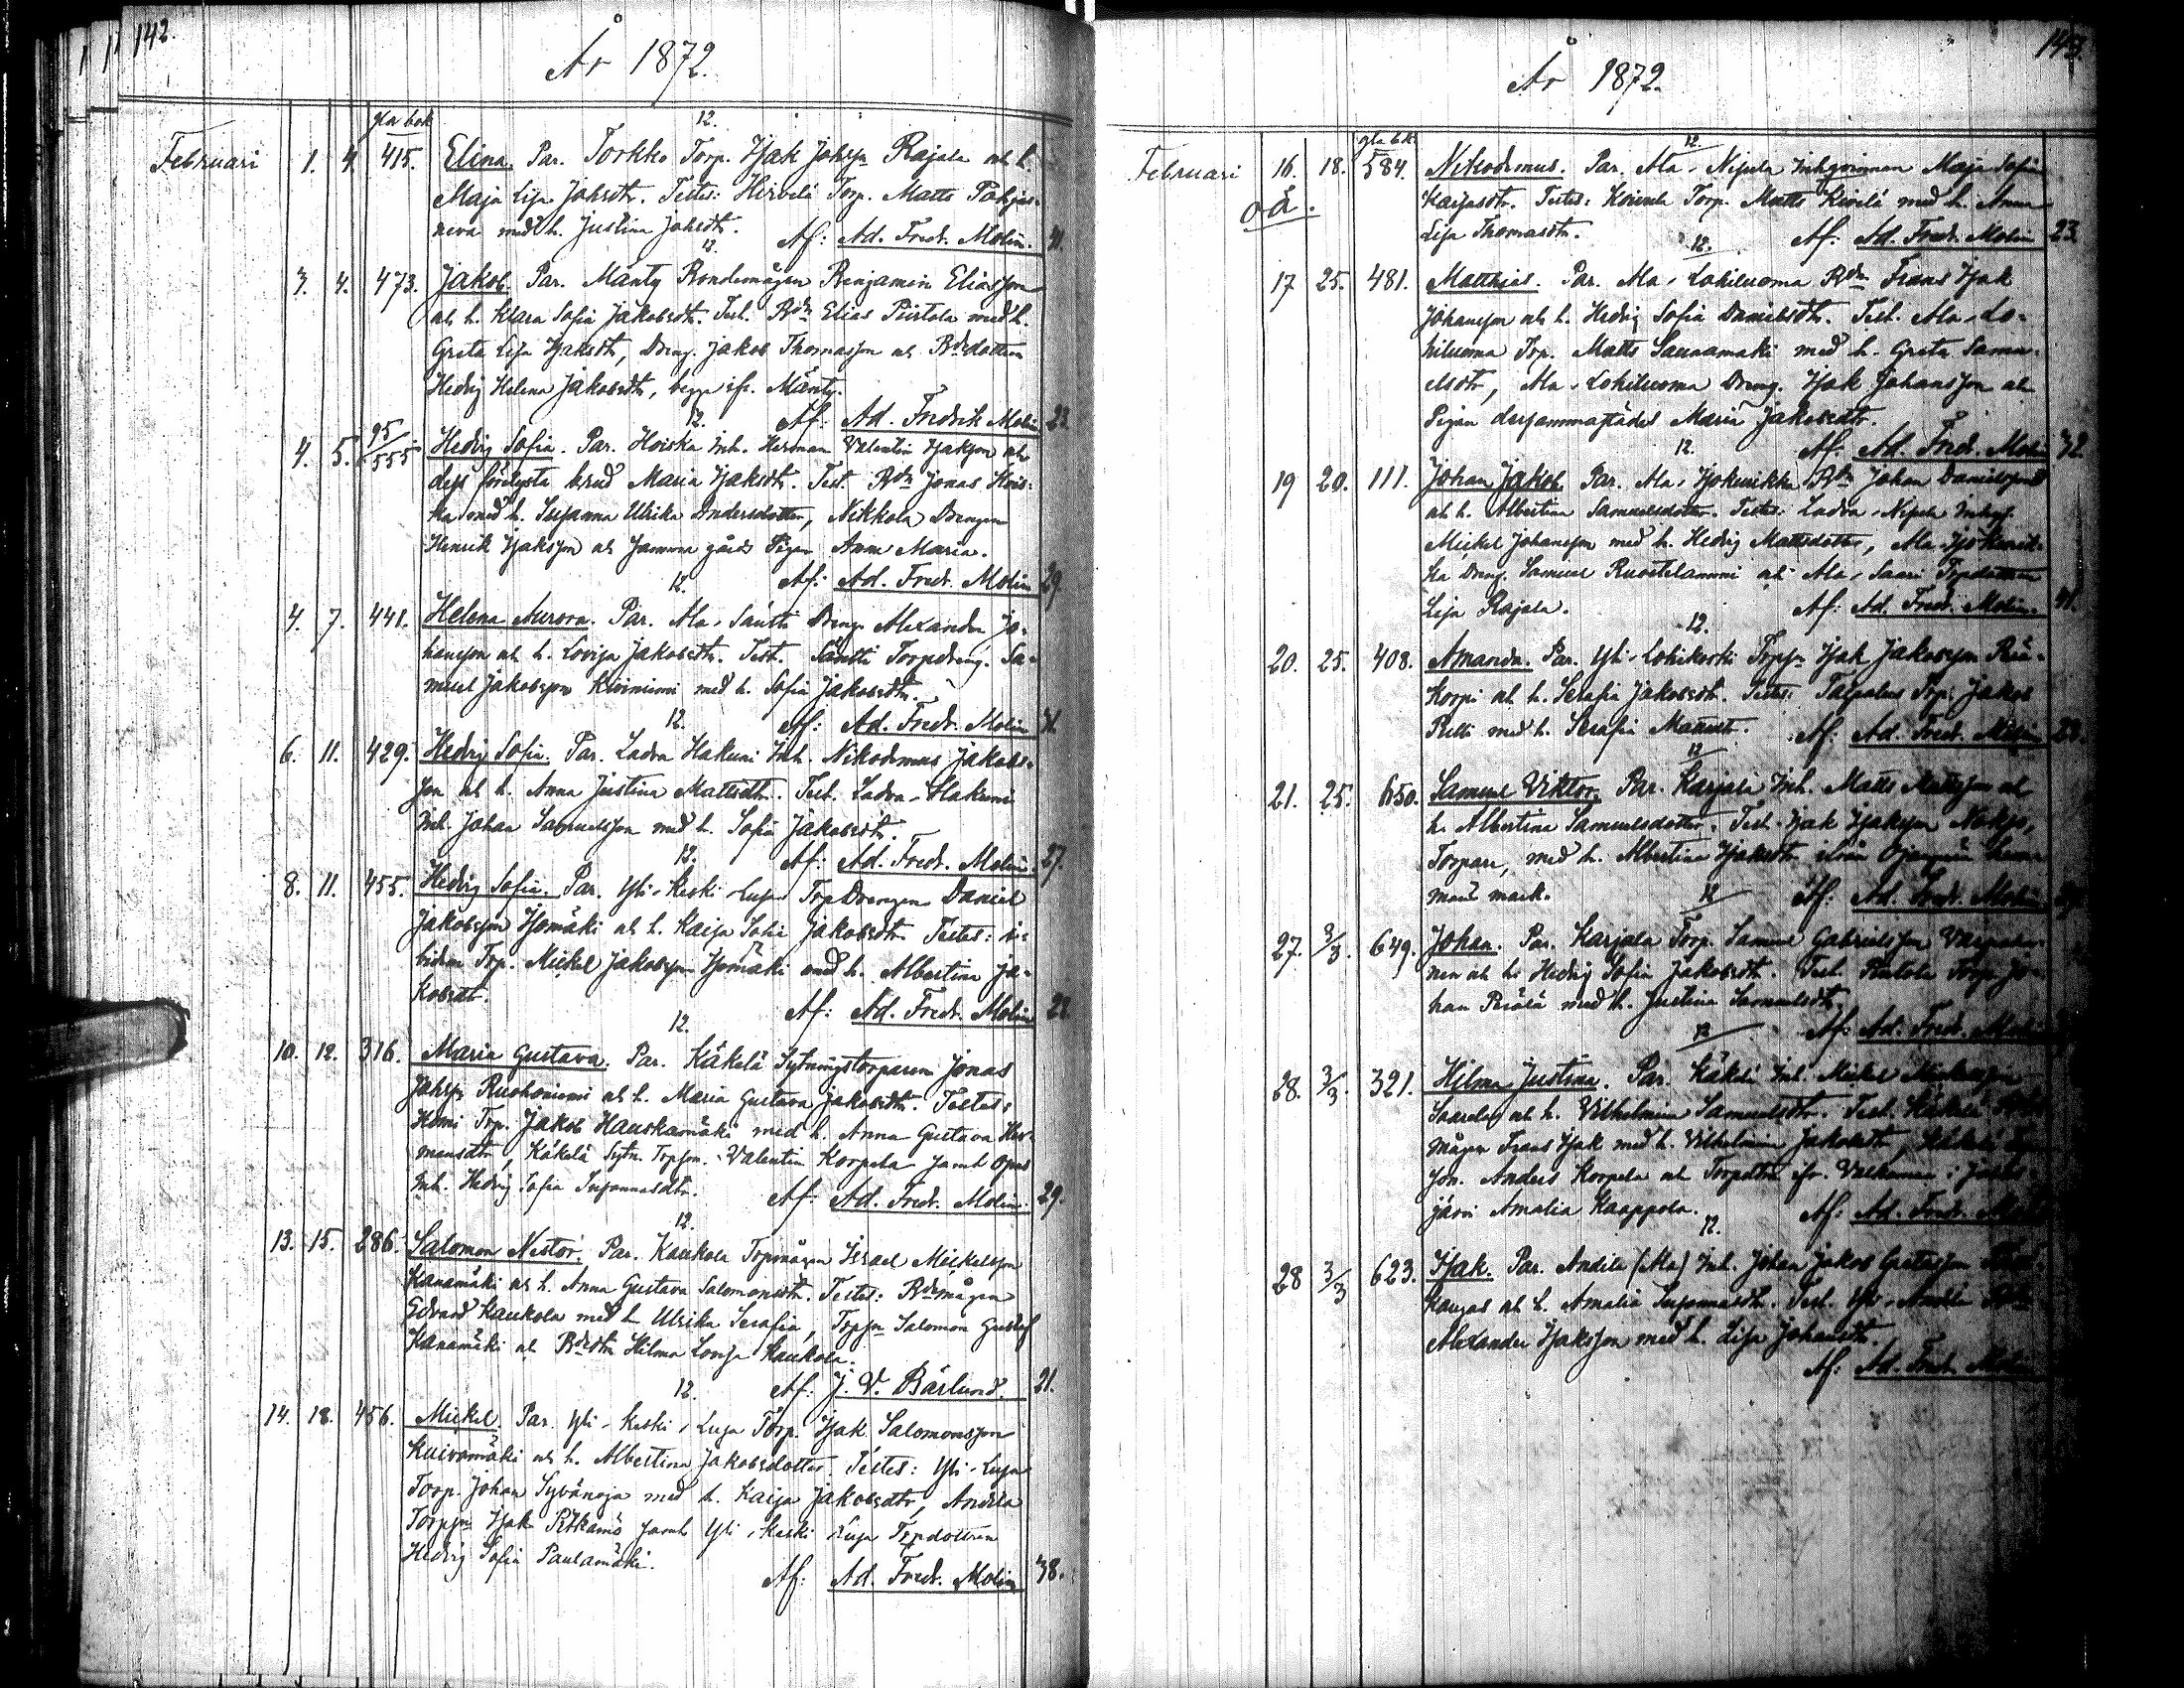 142.
År 1872.
gla bok 12.
Februari 1. 4. 415. Elina. Par. Torkko Torp. Isak Johsn Rajala och h.
Maja Lisa Johsdtr. Testes: Hirvelä Torp. Matts Pohjas-
neva med h. Justina Johsdtr.
12. Af: Ad. Fredr. Molin. 41.
3. 4. 473. Jakob. Par. Mänty Bondemågen Benjamin Eliasson
och h. Klara Sofia Jakobsdtr. Test. Bdn Elias Piirtola med h.
Greta Lisa Isaksdtr, Dreng. Jakob Thomasson och Bdedottren
Hedvig Helena Jakobsdtr, begge ifr. Mänty.
12. Af: Ad. Fredrik Molin 23.
4. 5. 95/555 Hedvig Sofia. Par. Hoiska Inh. Herman Valentin Isaksson och
dess förelysta brud Maria Isaksdtr. Test. Bdn Jonas Hois-
ka med h. Susanna Ulrika Andersdotter, Nikkola Drengen
Henrik Isaksson och samma gårds Pigan Anna Maria.
12. Af: Ad. Fredr. Molin 29
4. 7. 441. Helena Aurora. Par. Ala-Säntti Dreng. Alexander Jo-
hansson och h. Lovisa Jakobsdtr. Test. Säntti Torpdreng. Sa-
muel Jakobsson Kiviniemi med h. Sofia Jakobsdtr.
12. Af: Ad. Fredr. Molin
6. 11. 429. Hedvig Sofia. Par. Ladva Hakuni Inh. Nikodemus Jakobs-
son och h. Anna Justina Mattsdtr. Test. Ladva-Hakuni
Inh. Johan Samuelsson med h. Sofia Jakobsdtr.
12. Af: Ad. Fredr. Molin. 27.
8. 11. 455. Hedvig Sofia. Par. Yli-Keski-Luja TorpDrengen Daniel
Jakobsson Isomäki och h. Kaisa Sofia Jakobsdtr. Testes: i-
bidem Torp. Mickel Jakobsson Isomäki med h. Albertina Ja-
kobsdtr.
12. Af: Ad. Fredr. Molin 22
10. 12. 316. Maria Gustava. Par. Käkelä Sytningstorparen Jonas
Johsson Ruohoniemi och h. Maria Gustava Jakobsdtr. Testes:
Homi Trp. Jakob Hauskamäki med h. Anna Gustava Her-
mansdtr, Käkelä Sytn. Torpson. Valentin Korpela samt
Inh. Hedvig Sofia Susannasdtr.
Af: Ad. Fredr. Molin. 29.
12.
13. 15. 286. Salomon Nestor. Par. Kaukola Torpmågen Israel Mickelsson
Kanamäki och h. Anna Gustava Salomonsdtr. Testes: Bdemågen
Edvard Kaukola med h. Ulrika Serafia, Torpsn Salomon Gustaf
Kanamäki och Bdedtr Hilma Lovisa Kaukola.
12. Af: J. V. Bärlund. 21.
14. 18. 456. Mickel. Par. Yli-Keski-Luja Torp. Isak Salomonsson
Kuivamäki och h. Albertina Jakobsdotter. Testes: Yli-Luja
Torp. Johan Syvänoja med h. Kaisa Jakobsdtr, Andila
Torpsn Isak Pitkämö samt Yli-Keski Luja Trpdottren
Hedvig Sofia Paulamäki.
Af: Ad. Fredr. Molin 38.
143.
År 1872.
gla bok. 12.
Februari 16. 18. 584. Nikodemus. Par. Ala-Nisula Inhqvinnan Maja Sofia
oä. Kaisasdtr. Testes: Torp. Matts Kivelä med h. Anna
Lisa Thomasdtr.
12. Af: Ad. Fredr. Molin 23.
17 25. 481. Matthias. Par. Ala-Lohiluoma Bdn Frans Isak
Johansson och h. Hedvig Sofia Danielsdtr. Test. Ala-Lo-
hiluoma Torp. Matts Saunamäki med h. Greta Samu-
elsdtr, Ala-Lohiluoma Dreng. Isak Johansson och
Pigan dersammastädes Maria Jakobsdtr.
12. Af: Ad. Fredr. Molin 32.
19 20. 111. Johan Jakob. Par. Ala-Jokivikko Bdn Johan Danielsson
och h. Albertina Samuelsdotter. Testes: Ladva-Nisula
Mickel Johansson med h. Hedvig Mattsdotter, Ala-
ka Dreng. Samuel Ruostelammi och Ala-Saari Torpdottren
Lisa Rajala. Af: Ad. Fredr. Molin. 41.
12.
20. 25. 408. Amanda. Par. Yli-Lohikoski Torpsn Isak Jakobsson
korpi och h. Serafia Jakobsdtr. Testes: Torp. Jakob
med h. Serafia Mattsdtr. Af: Ad. Fredr. Molin 23.
12
21. 25. 650. Samuel Viktor. Par. Karjala Inh. Matts Mattsson och
h. Albertina Samuelsdotter. Test. Isak Isaksson
Torpare, med h. Albertina Isaksdtr ifrån
mark. 12 Af: Ad. Fredr. Molin
27. 3/3. 649. Johan. Par. Karjala Torp. Samuel Gabrielsson
nen och h. Hedvig Sofia Jakobsdtr. Test. Torp. Jo-
han med h. Justina Samuelsdtr.
12 Af: Ad. Fredr. Molin
28. 3/3. 321. Hilma Justina. Par. Käkelä Inh. Mickel
och h. Vilhelmina Samuelsdtr. Test. Käkelä
mågen Frans Isak med h. Vilhelmina Jakobsdtr, Käkelä
son. Anders Korpela och Torpdtr ifr. i
järvi Amalia Kaappola. Af: Ad. Fredr.
12.
28 3/3 623. Isak. Par. Andila (Ala) Inh. Johan Jakob Gretasson
kangas och h. Amalia Susannasdtr. Test. Yli-Andila
Alexander Isaksson med h. Lisa Johansdtr.
Af: Ad. Fredr. Molin